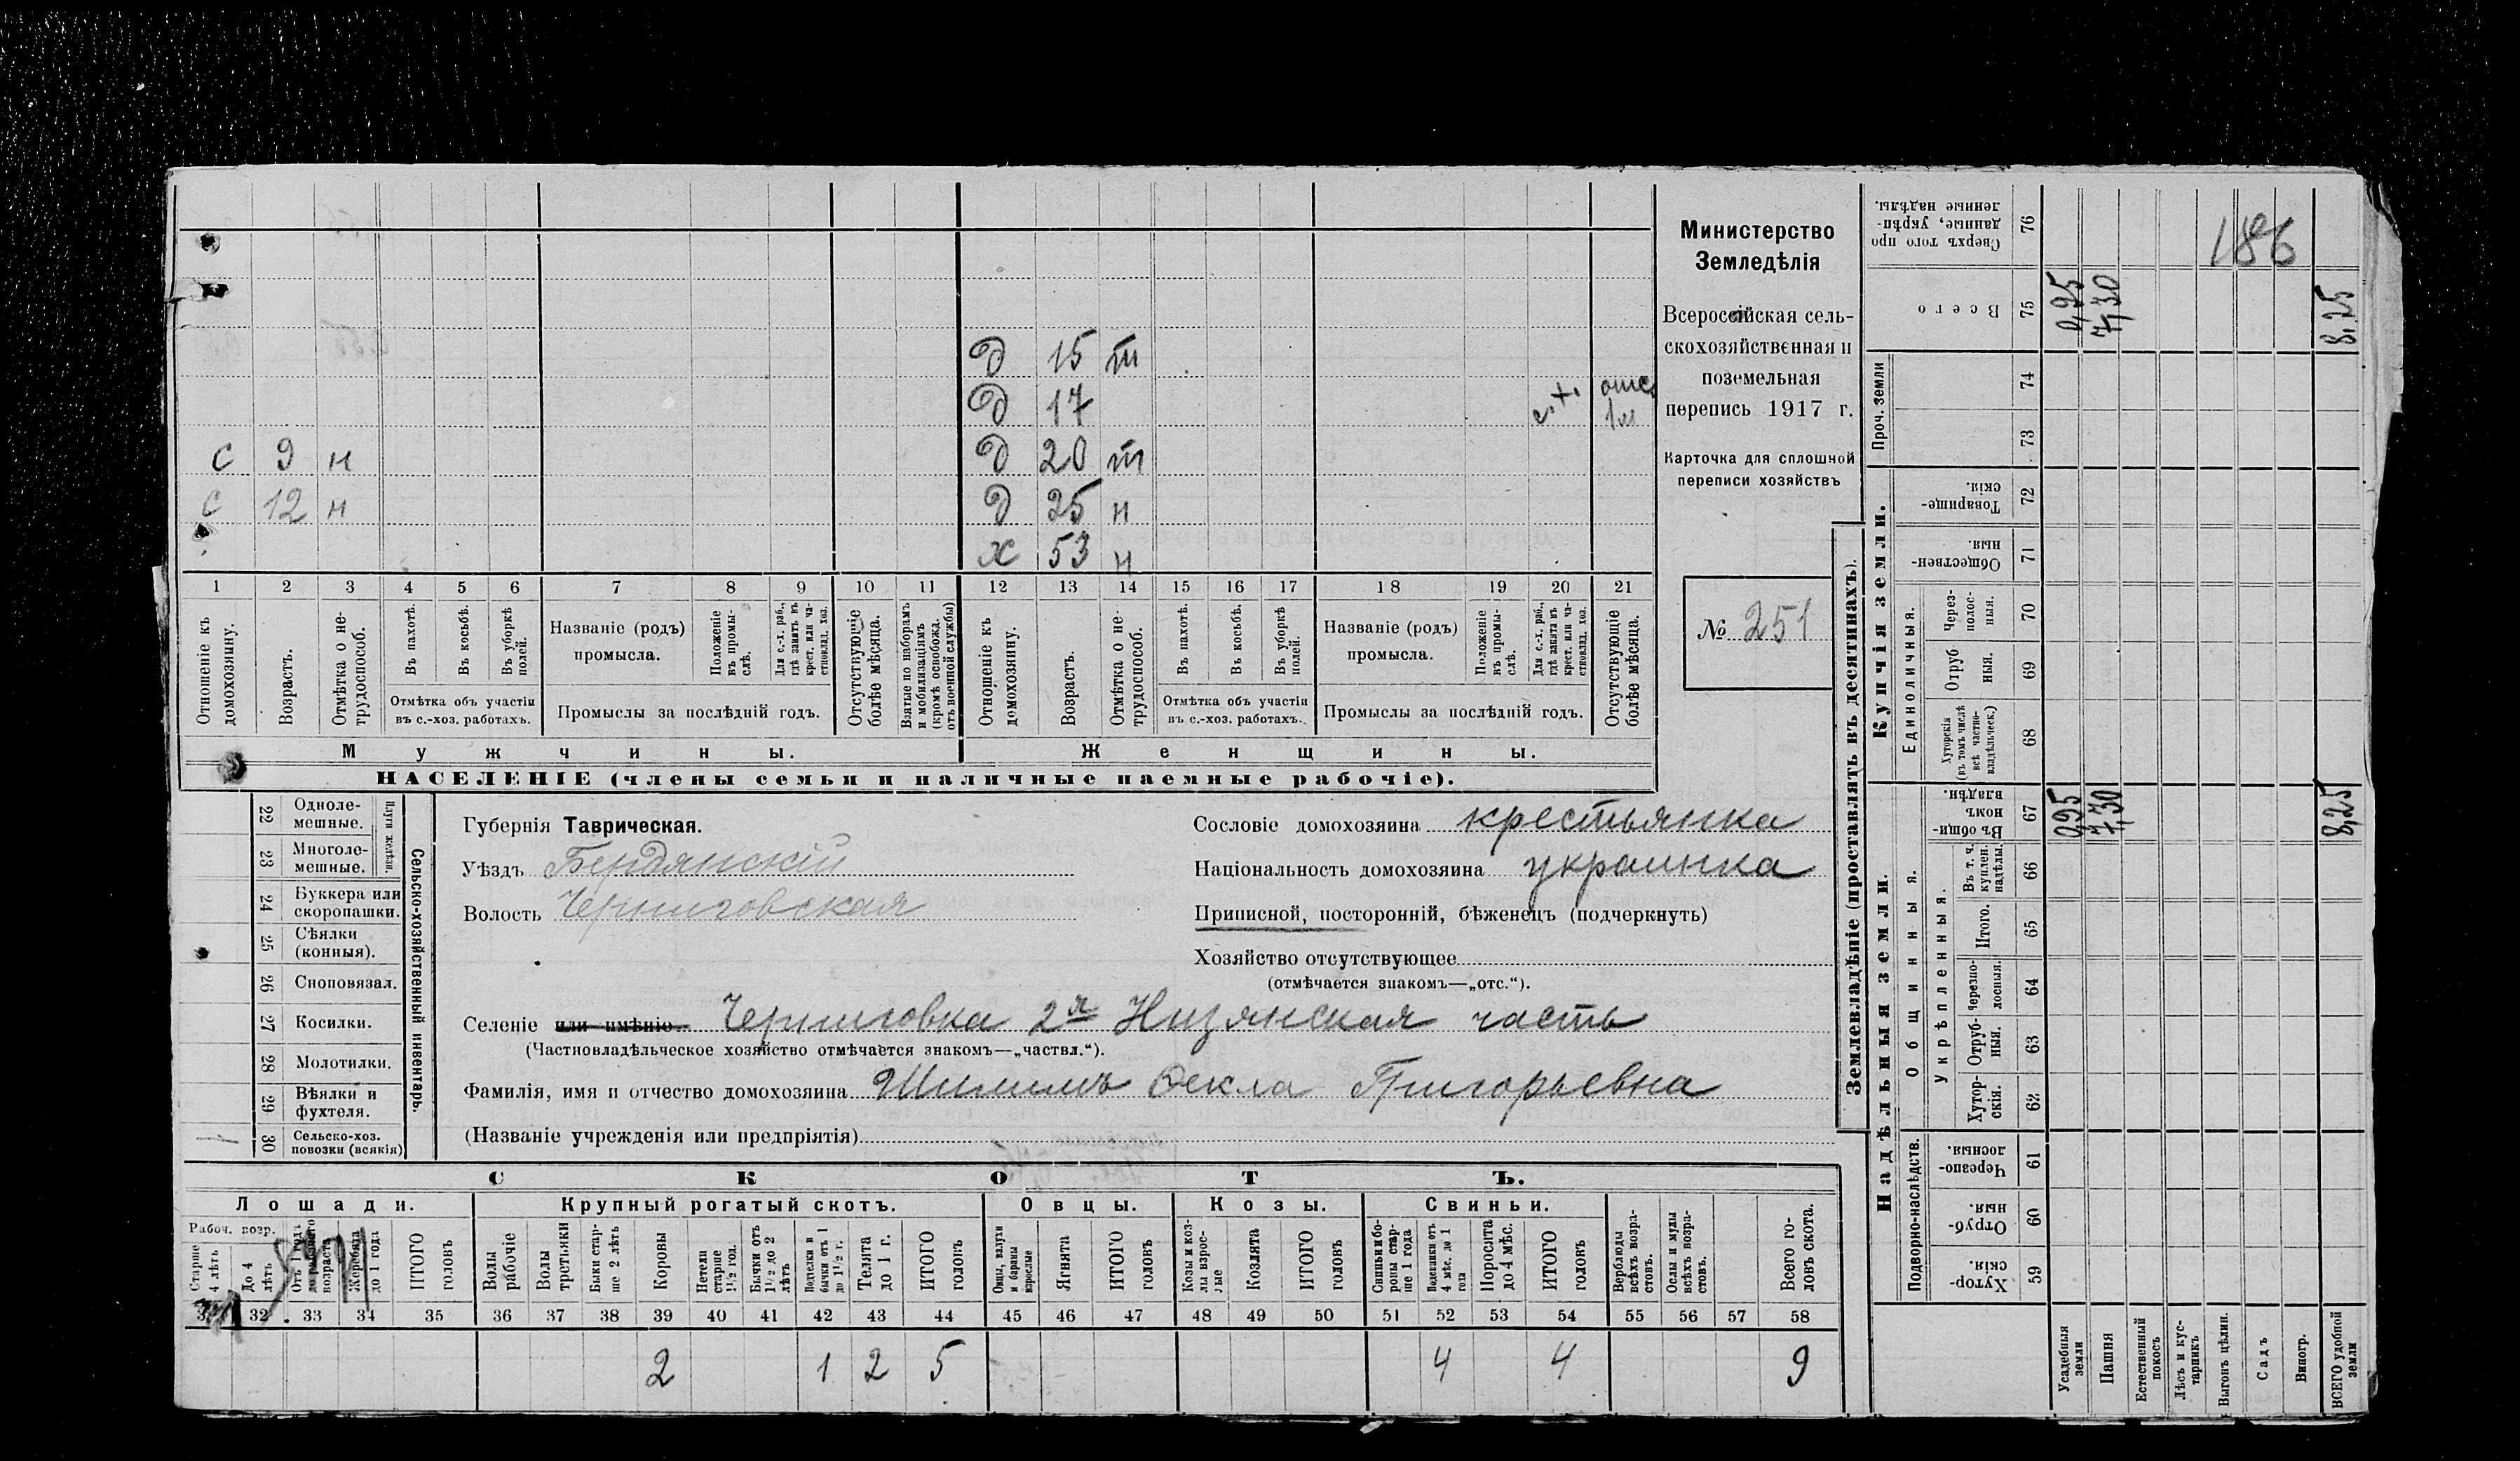 Министерство
Земледѣлія
Всероссійская сель-
скохозяйственная и
поземельная
перепись 1917 г.
Карточка для сплошной
переписи хозяйствъ
№ 251
186
Д 15 т
Д 17 с.х. отс. 1м
С 9 н Д 20 т
С 12 н Д 25 н
Х 53 н
1 2 3 4 5 6 7 8 9 10 11 12 13 14 15 16 17 18 19 20 21
Отношеніе къ домохозяину.
Возрастъ.
Отмѣтка о не-трудоспособ.
Въ пахотѣ.
Въ косьбѣ.
Въ уборкѣ полей.
Отмѣтка объ участіи въ с.-хоз. работахъ.
Названіе (родъ) промысла.
Положеніе въ промы-слѣ.
Для с.-х. раб., гдѣ занятъ въ крест. или ча-стновлад. хоз.
Промыслы за послѣдній годъ.
Отсутствующіе болѣе мѣсяца.
Взятые по наборамъ и мобилизаціямъ (кромѣ освобожд. отъ военной службы)
Отношеніе къ домохозяину.
Возрастъ.
Отмѣтка о не-трудоспособ.
Въ пахотѣ.
Въ косьбѣ.
Въ уборкѣ полей.
Отмѣтка объ участіи въ с.-хоз. работахъ.
Названіе (родъ) промысла.
Положеніе въ промы-слѣ.
Для с.-х. раб., гдѣ занята въ крест. или ча-стновлад. хоз.
Промыслы за послѣдній годъ.
Отсутствующіе болѣе мѣсяца.
Мужчины. Женщины.
НАСЕЛЕНІЕ (члены семьи и наличные наемные рабочіе).
Сельско-хозяйственный инвентарь.
Плуги желѣзн.
22 Одноле-мешные.
23 Многоле-мешные.
24 Буккера или скоропашки.
25 Сѣялки (конныя).
26 Сноповязал.
27 Косилки.
28 Молотилки.
29 Вѣялки и фухтеля.
1 30 Сельско-хоз. повозки (всякія)
Губернія Таврическая.
Уѣздъ Бердянскій
Волость Черниговская
Сословіе домохозяина крестьянка
Національность домохозяина украинка
Приписной, посторонній, бѣженецъ (подчеркнуть)
Хозяйство отсутствующее
(отмѣчается знакомъ—„отс.“).
Селеніе или имѣніе Черниговка 2я Низянская часть
(Частновладѣльческое хозяйство отмѣчается знакомъ—„частвл.“).
Фамилія, имя и отчество домохозяина Шилимъ Фекла Григорьевна
(Названіе учрежденія или предпріятія)
СКОТЪ.
Лошади. Крупный рогатый скотъ. Овцы. Козы. Свиньи.
Рабоч. возр.
Старше 4 лѣтъ
До 4 лѣтъ
Отъ 1 года до рабочаго возраста
Жеребята до 1 года
ИТОГО головъ
Волы рабочіе
Волы третьяки
Быки стар-ше 2 лѣтъ
Коровы
Нетели старше 1½ год.
Бычки отъ 1½ до 2 лѣтъ
Подтелки и бычки отъ 1 до 1½ г.
Телята до 1 г.
ИТОГО головъ
Овцы, валухи и бараны взрослые
Ягнята
ИТОГО головъ
Козы и коз-лы взрос-лые
Козлята
ИТОГО головъ
Свиньи и бо-ровы стар-ше 1 года
Подсвинки отъ 4 мѣс. до 1 года
Поросята до 4 мѣс.
ИТОГО головъ
Верблюды всѣхъ возра-стовъ.
Ослы и мулы всѣхъ возра-стовъ.
Всего го-ловъ скота.
32 33 34 35 36 37 38 39 40 41 42 43 44 45 46 47 48 49 50 51 52 53 54 55 56 57 58
2 1 2 5 4 4 9
Землевладѣніе (проставлять въ десятинахъ).
Сверхъ того про-данные, укрѣп-ленные надѣлы. 76
Всего 75 0,95 7,30 8,25
Проч. земли 74 73
Купчія земли.
Товарище-скія. 72
Обществен-ныя. 71
Единоличныя.
Через-полос-ныя. 70
Отруб-ныя. 69
Хуторскія (въ томъ числѣ всѣ частно-владѣльческ.) 68
Надѣльныя земли.
Общинныя.
Въ общин-номъ владѣн. 67 0,95 7,30 8,25
Въ т. ч. куплен. надѣлы. 66
Укрѣпленныя.
Итого. 65
Черезпо-лосныя. 64
Отруб-ныя. 63
Хутор-скія. 62
Подворно-наслѣдств.
Черезпо-лосныя. 61
Отруб-ныя. 60
Хутор-скія. 59
Усадебныя земли
Пашня
Естественный покосъ
Лѣсъ и кус-тарникъ
Выгонъ цѣлин.
Садъ
Виногр.
ВСЕГО удобной земли